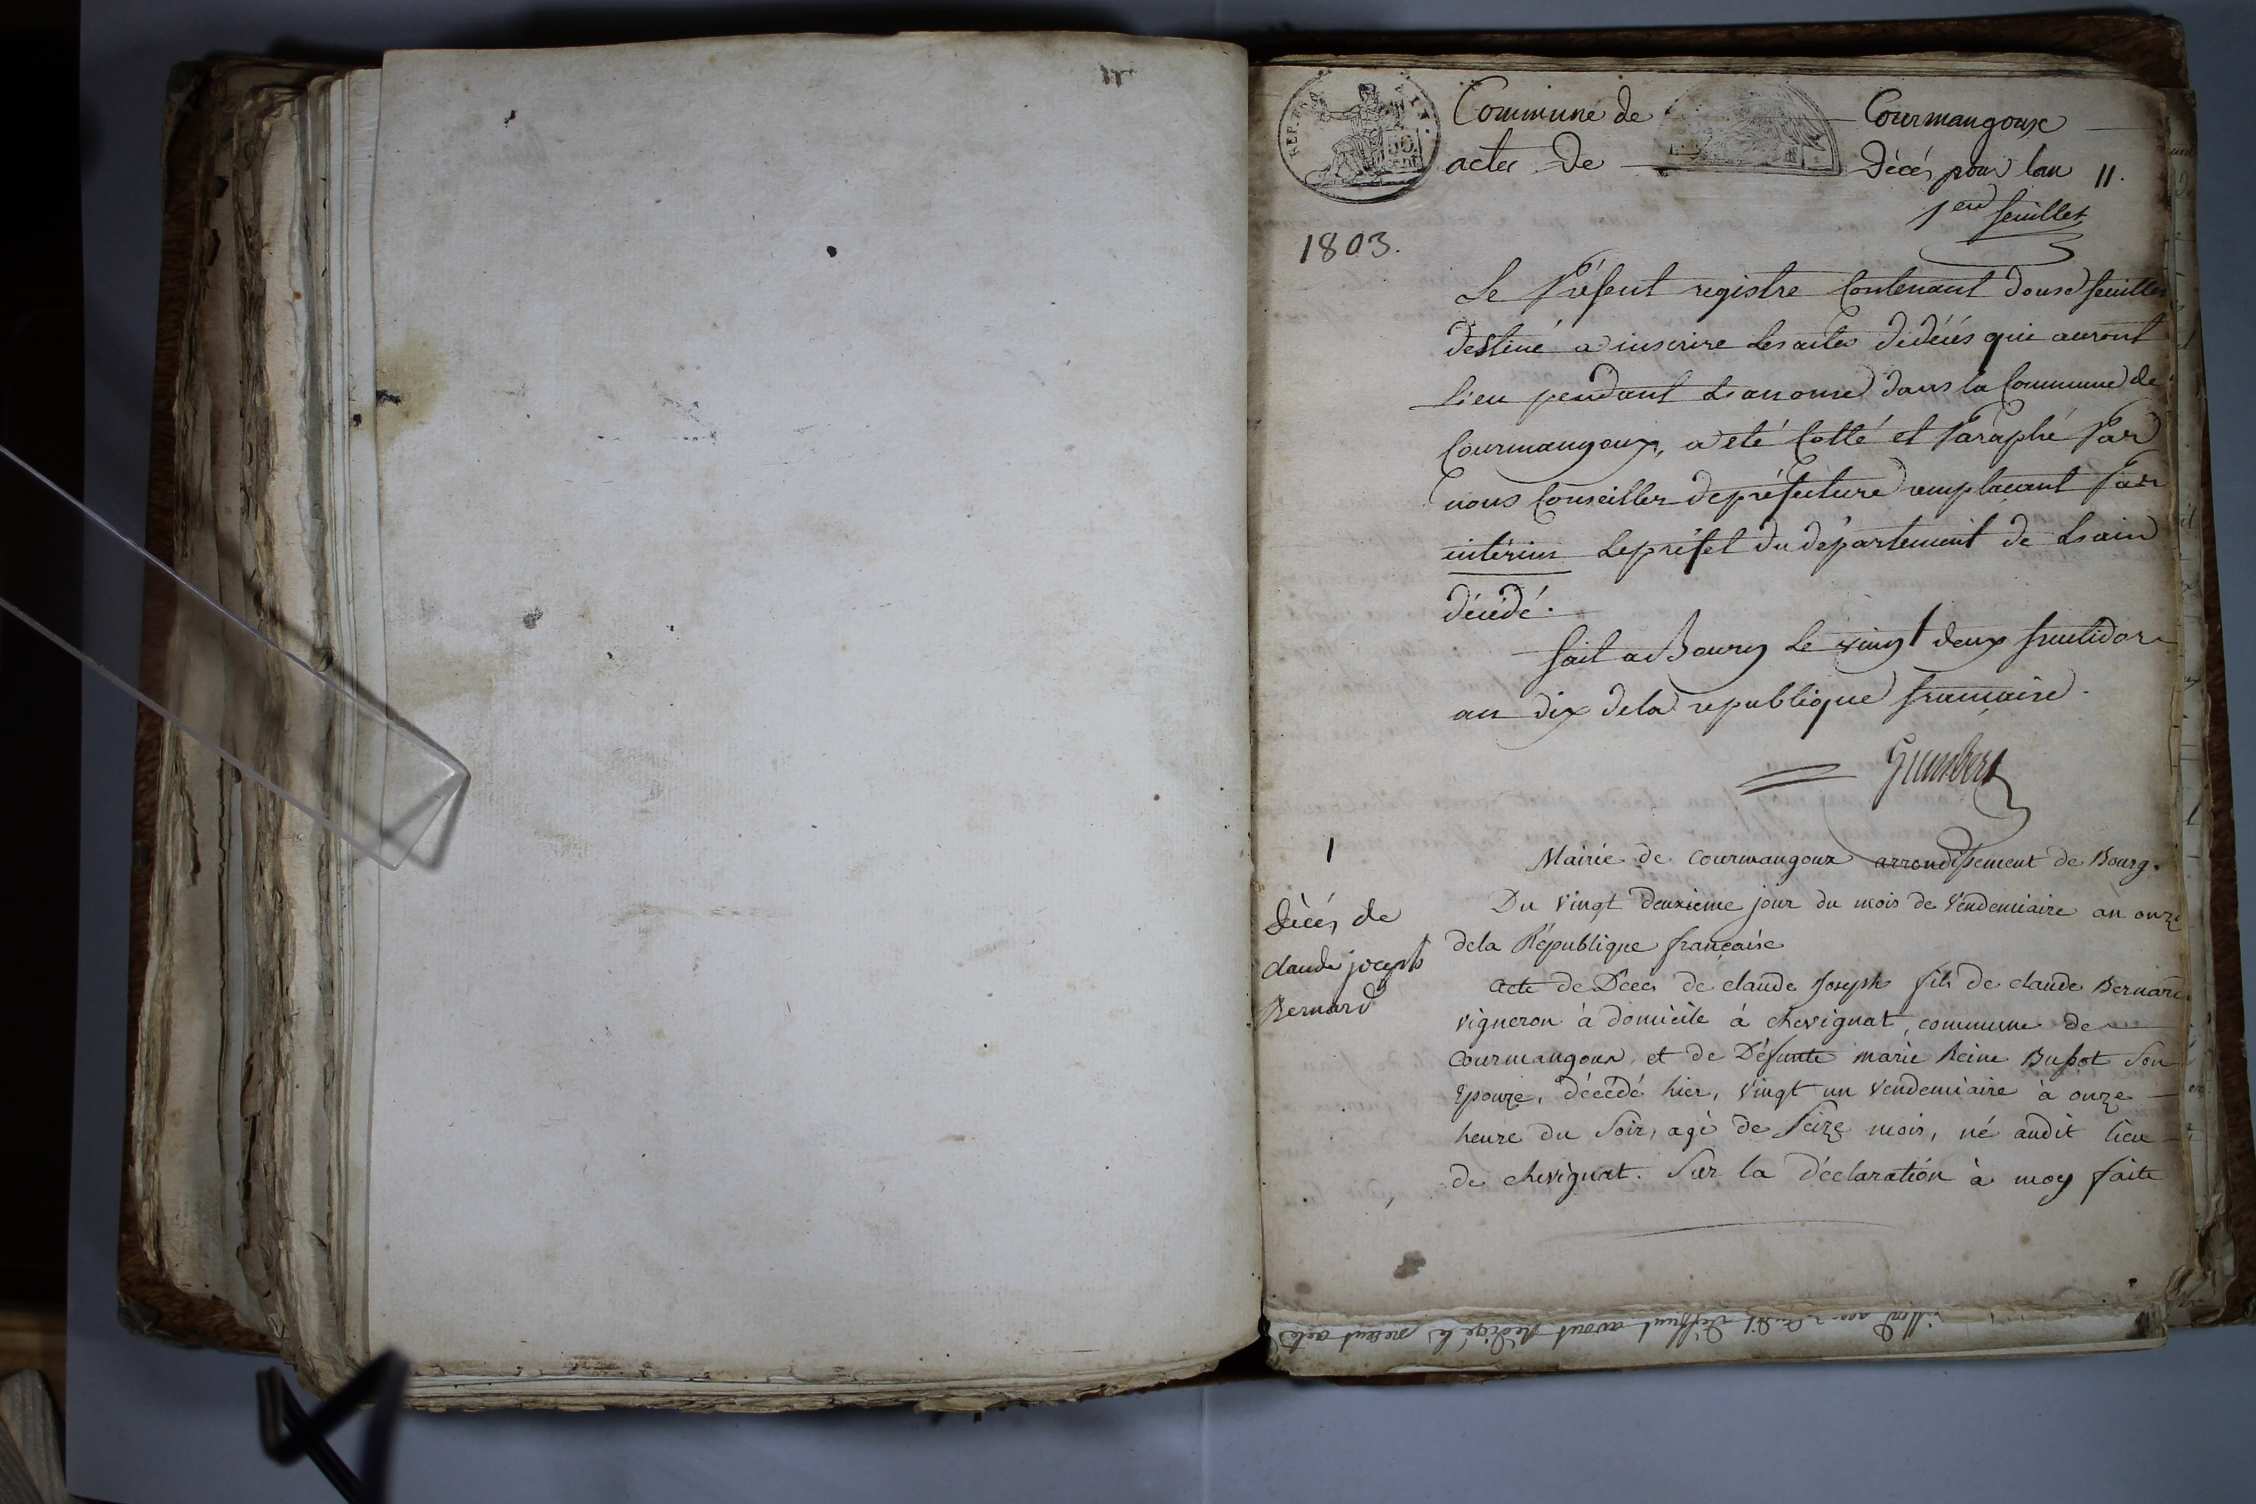 Commune de Courmangoux
actes de Décés pour lan 11.
1er feuillet
1803.
Le Présent registre Contenant douse feuillets
destiné a inscrire Les actes de décés qui auront
lieu pendant L'an onse dans la Commune de
Courmangoux, a été Cotté et Paraphé Par
nous Conseiller de préfecture remplacant Par
intérim Le préfet du département de L'ain
décédé.
fait a Bourg Le vingt deux fructidor
an dix de la republique francaise.
1
Mairie de Courmangoux arrondissement de Bourg.
Du vingt deuxieme jour du mois de Vendemiaire an onze
de la République française
décés de
claude joseph
Bernard
acte de Décés de claude Joseph fils de claude Bernard
vigneron à domicile à chevignat, commune de
Courmangoux, et de Défunte marie Reine Bussot Son
Epouze, décédé hier, vingt un vendemiaire à onze
heure du Soir, agé de Seize mois, né audit lieu
de chevignat. Sur la déclaration à moy faite